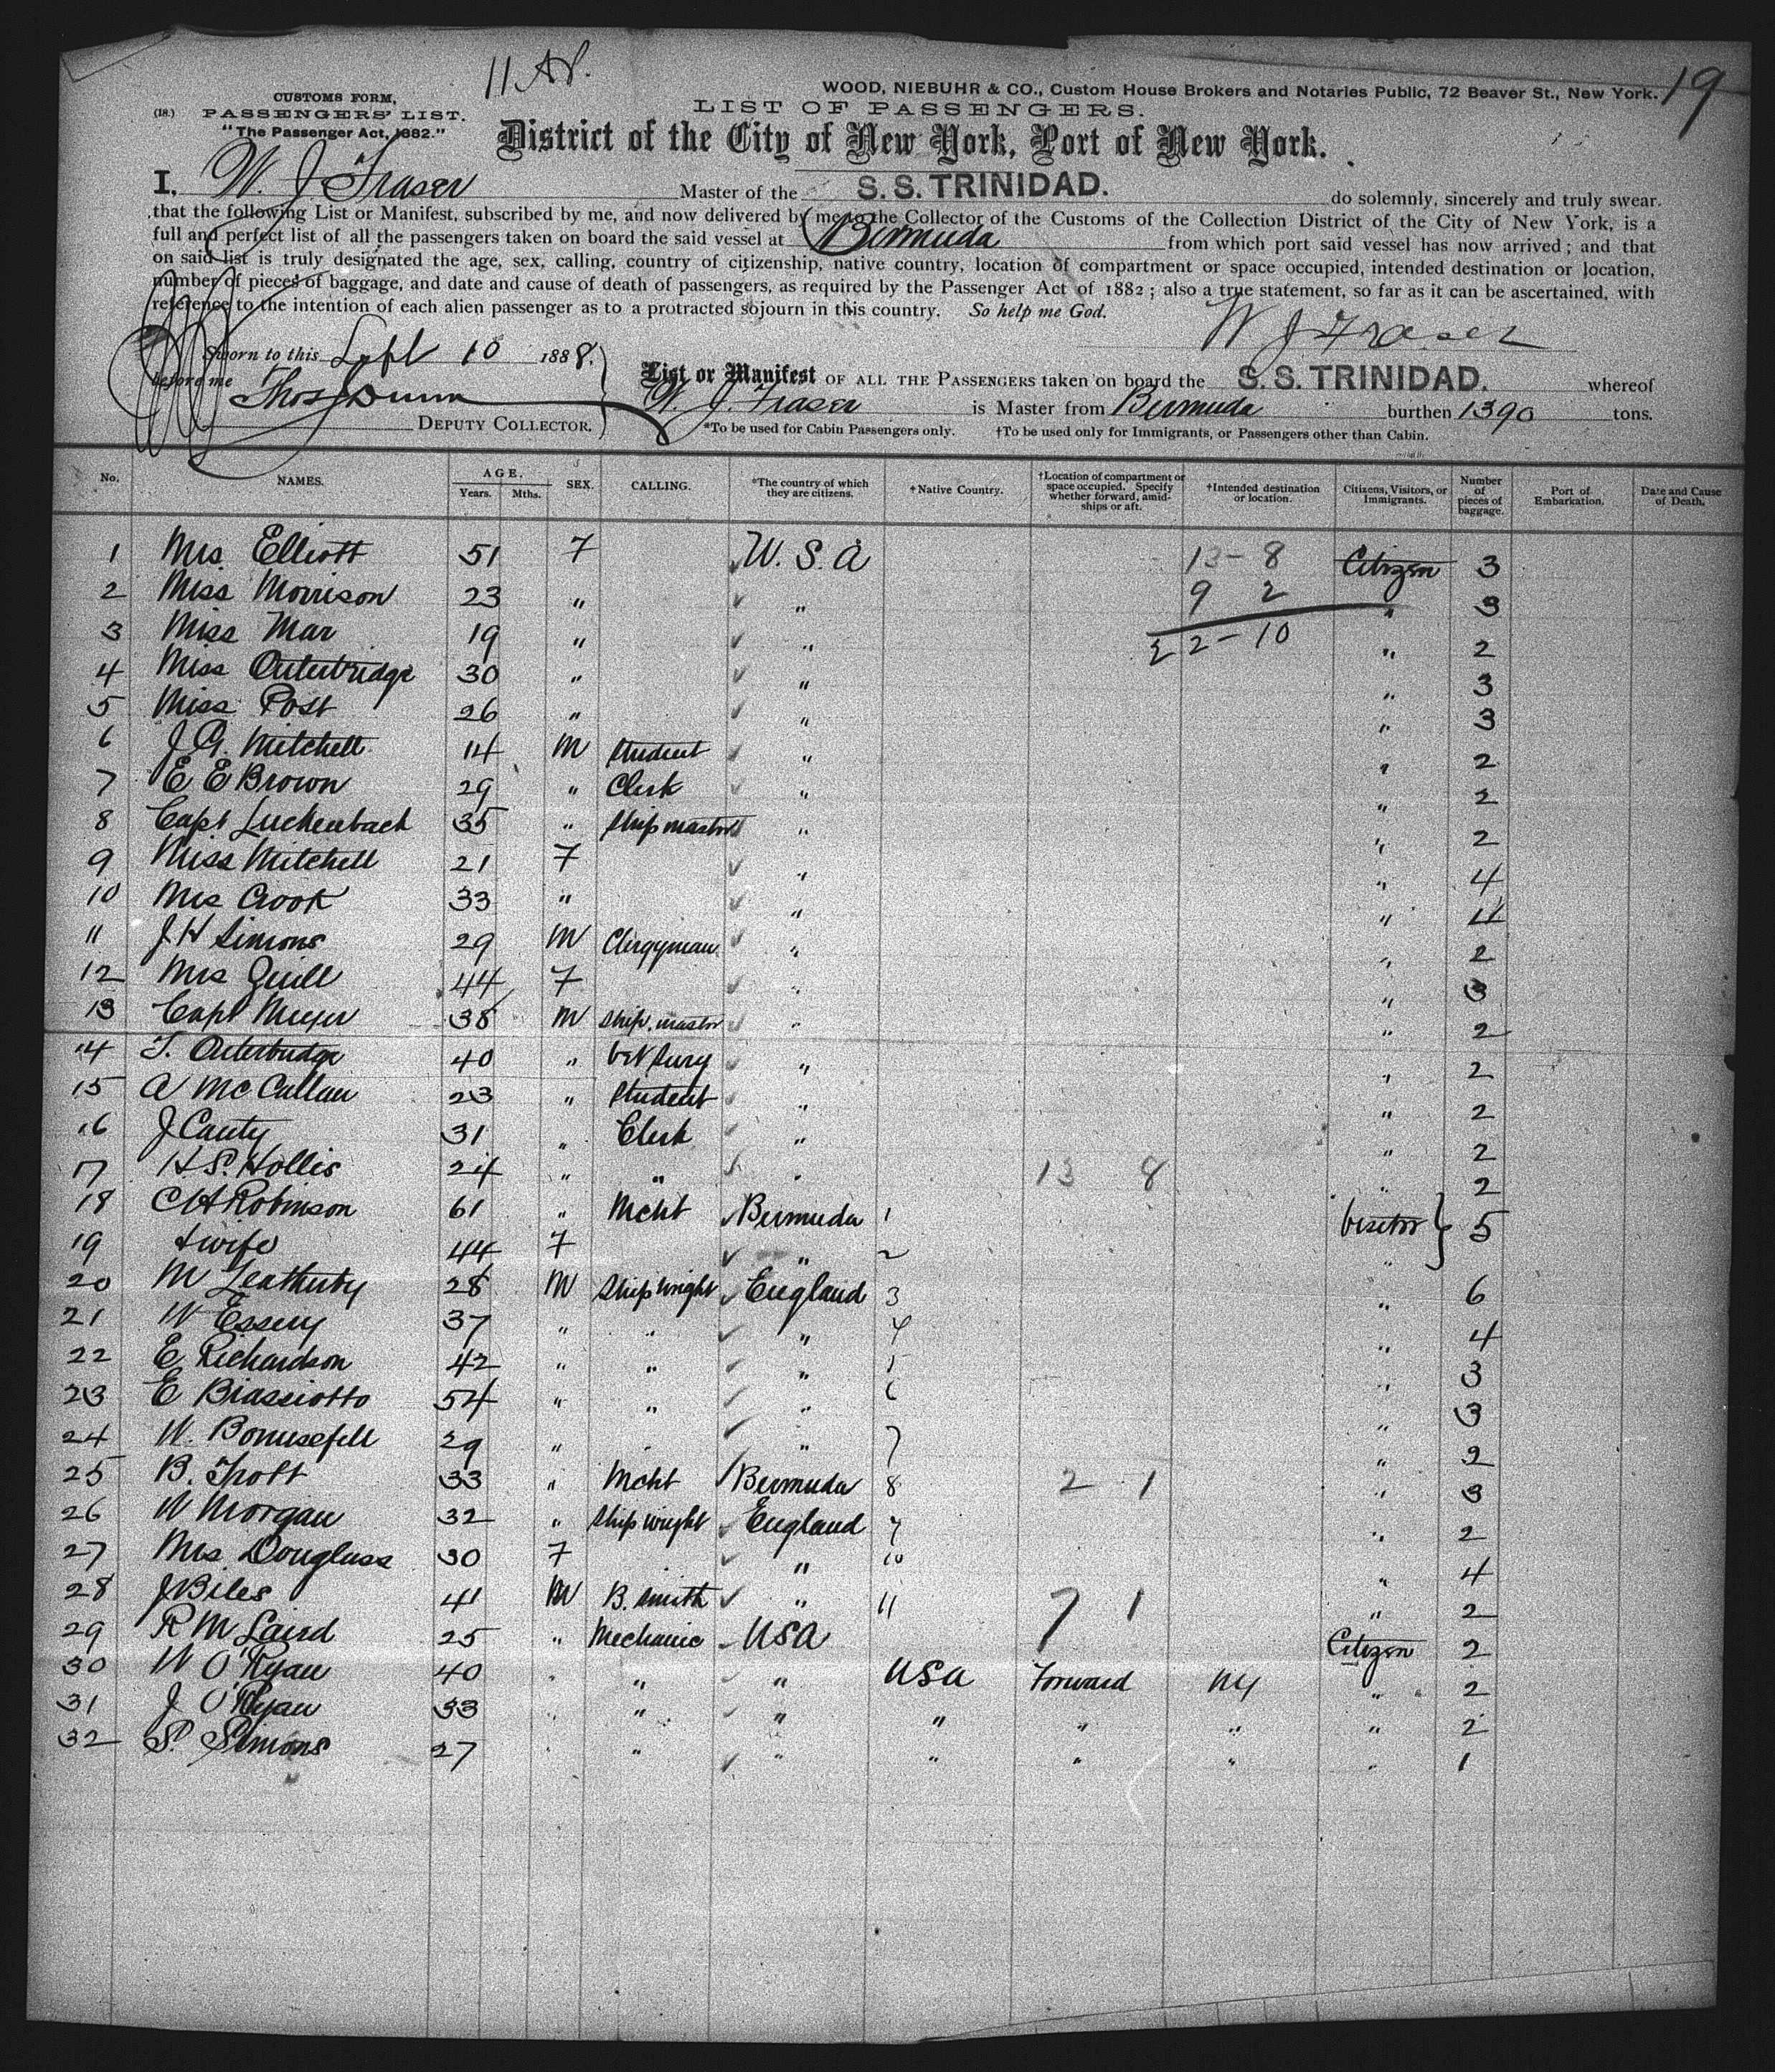 11 AP.
19
CUSTOMS FORM,
(18.) PASSENGERS' LIST.
"The Passenger Act, 1882."
WOOD, NIEBUHR & CO., Custom House Brokers and Notaries Public, 72 Beaver St., New York.
LIST OF PASSENGERS.
District of the City of New York, Port of New York.
I, W. J. Fraser Master of the S. S. TRINIDAD. do solemnly, sincerely and truly swear.
that the following List or Manifest, subscribed by me, and now delivered by me to the Collector of the Customs of the Collection District of the City of New York, is a
full and perfect list of all the passengers taken on board the said vessel at Bermuda from which port said vessel has now arrived; and that
on said list is truly designated the age, sex, calling, country of citizenship, native country, location of compartment or space occupied, intended destination or location,
number of pieces of baggage, and date and cause of death of passengers, as required by the Passenger Act of 1882; also a true statement, so far as it can be ascertained, with
reference to the intention of each alien passenger as to a protracted sojourn in this country. So help me God.
W J Fraser
Sworn to this Sept 10 1888.
before me Thos Dunn
DEPUTY COLLECTOR.
List or Manifest OF ALL THE PASSENGERS taken on board the S. S. TRINIDAD. whereof
W. J. Fraser is Master from Bermuda burthen 1390 tons.
*To be used for Cabin Passengers only. †To be used only for Immigrants, or Passengers other than Cabin.
No. NAMES. AGE. Years. Mths. SEX. CALLING. *The country of which they are citizens. †Native Country. †Location of compartment or space occupied. Specify whether forward, amidships or aft. †Intended destination or location. Citizens, Visitors, or Immigrants. Number of pieces of baggage. Port of Embarkation. Date and Cause of Death.
1 Mrs. Elliott 51 F U. S. A 13 - 8 Citizen 3
2 Miss Morrison 23 " " 9 2 " 3
3 Miss Mar 19 " " 22 - 10 " 2
4 Miss Outerbridge 30 " " " 3
5 Miss Post 26 " " " 3
6 J. G. Mitchell 14 M Student " " 2
7 E E Brown 29 " Clerk " " 2
8 Capt Luckenbach 35 " Ship master " " 2
9 Miss Mitchell 21 F " " 4
10 Mrs Crook 33 " " " 4
11 J H Simons 29 M Clergyman " " 2
12 Mrs Quill 44 F " " 3
13 Capt Meyer 38 M Ship. master " " 2
14 T. Outerbridge 40 " Vet Surg " " 2
15 A McCallan 23 " Student " " 2
16 J Canty 31 " Clerk " " 2
17 H. S. Hollis 24 " " " 13 8 " 2
18 C H Robinson 61 " Mcht Bermuda 1 Visitor 5
19 & wife 44 F " 2 "
20 M Leatherby 28 M Ship wright England 3 " 6
21 W Essery 37 " " " 4 " 4
22 E Richardson 42 " " " 5 " 3
23 E Biassiotto 54 " " " 6 " 3
24 W. 29 " " " 7 " 2
25 B. Trott 33 " Mcht Bermuda 8 2 1 " 3
26 W Morgan 32 " Ship wright England 9 " 2
27 Mrs Douglass 30 F " 10 " 4
28 J Biles 41 M B. Smith " 11 7 1 " 2
29 R M Laird 25 " Mechanic USA Citizen 2
30 W O'Ryan 40 " " " USA Forward NY " 2
31 J O'Ryan 33 " " " " " " " 2
32 S. Simons 27 " " " " " " " 1